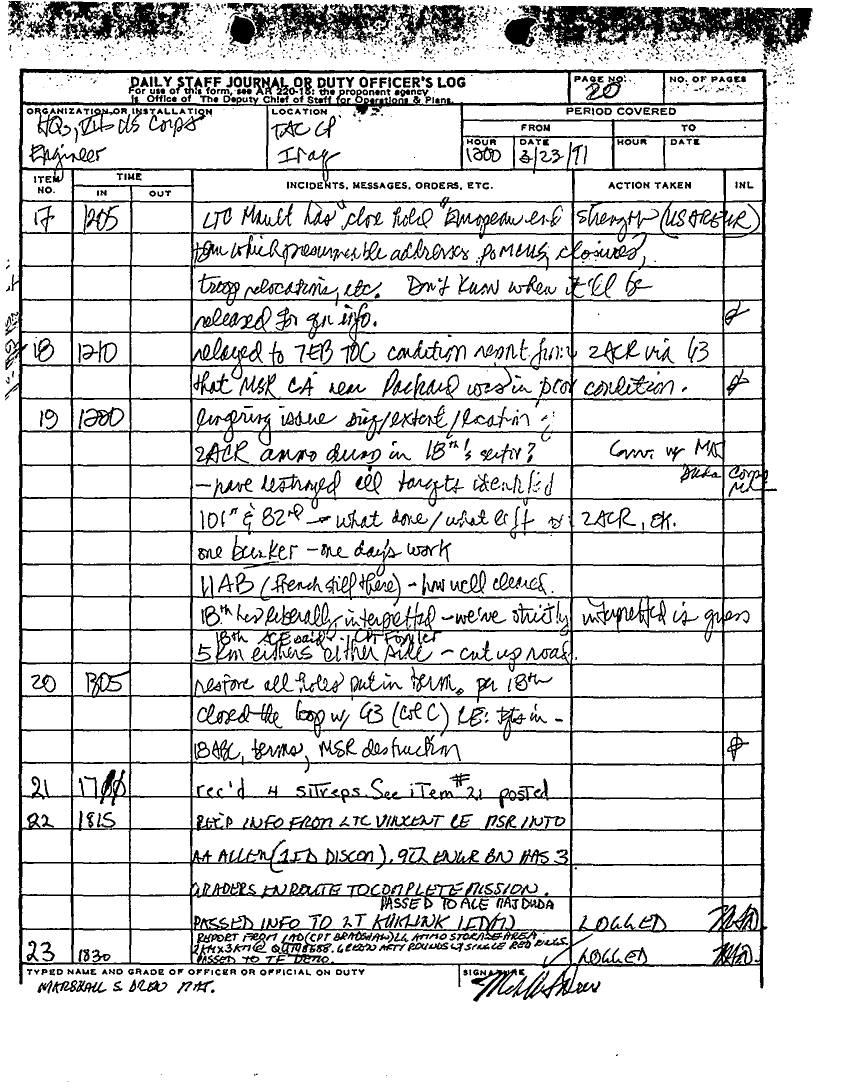 DAILY STAFF JOURNAL OR DUTY OFFICER'S LOG
For use of this form, see AR 220-15; the proponent agency
is Office of The Deputy Chief of Staff for Operations & Plans.
PAGE NO.
20
NO. OF PAGES
ORGANIZATION OR INSTALLATION
HQ, VII US Corps
Engineer
LOCATION
TAC CP
Iraq
PERIOD COVERED
FROM
TO
HOUR
1200
DATE
3/23/91
HOUR
DATE
ITEM NO.
TIME
IN
OUT
INCIDENTS, MESSAGES, ORDERS, ETC.
ACTION TAKEN
INL
17 1205 LTC has "close hold" European end strength (USAREUR)
which addresses POMCUS, closures,
troop relocations, etc. Don't know when it'll be
released for gn info.
18 1210 relayed to 7EB TOC condition report from 2ACR via G3
that MSR CA near Packard was in poor condition.
19 1200 lingering issue size/extent/location of
2ACR ammo dump in 18th's sector?
Conv. w/ MAJ
Duda Corps
- have destroyed all targets identified
101st & 82nd - what done/what left 2ACR, OK.
one bunker - one days work
(French still there) - how well cleared.
18th has liberally interpretted - we've strictly interpretted is guess
18th ACE said CPT
5 km either side - cut up road.
20 1305 restore all holes put in term. per 18th
closed the loop w/ G3 (Col C) RE: in -
18ABC, terms, MSR destruction
21 17 rec'd 4 sitreps. See item #21 posted
22 1815 REC'D INFO FROM LTC VINCENT RE MSR INTO
AA ALLEN (1ID DISCOM), 9TH ENGR BN HAS 3
GRADERS ENROUTE TO COMPLETE MISSION.
PASSED TO ACE MAJ DUDA
PASSED INFO TO LT LOGGED
REPORT FROM 1AD (CPT BRADSHAW) LG AMMO STORAGE AREA
2KM X 3KM @ GREEN ARTY ROUNDS W/ SINGLE RED RINGS.
23 1830 PASSED TO TF DEMO. LOGGED
TYPED NAME AND GRADE OF OFFICER OR OFFICIAL ON DUTY
MARSHALL S DREW MAJ.
SIGNATURE